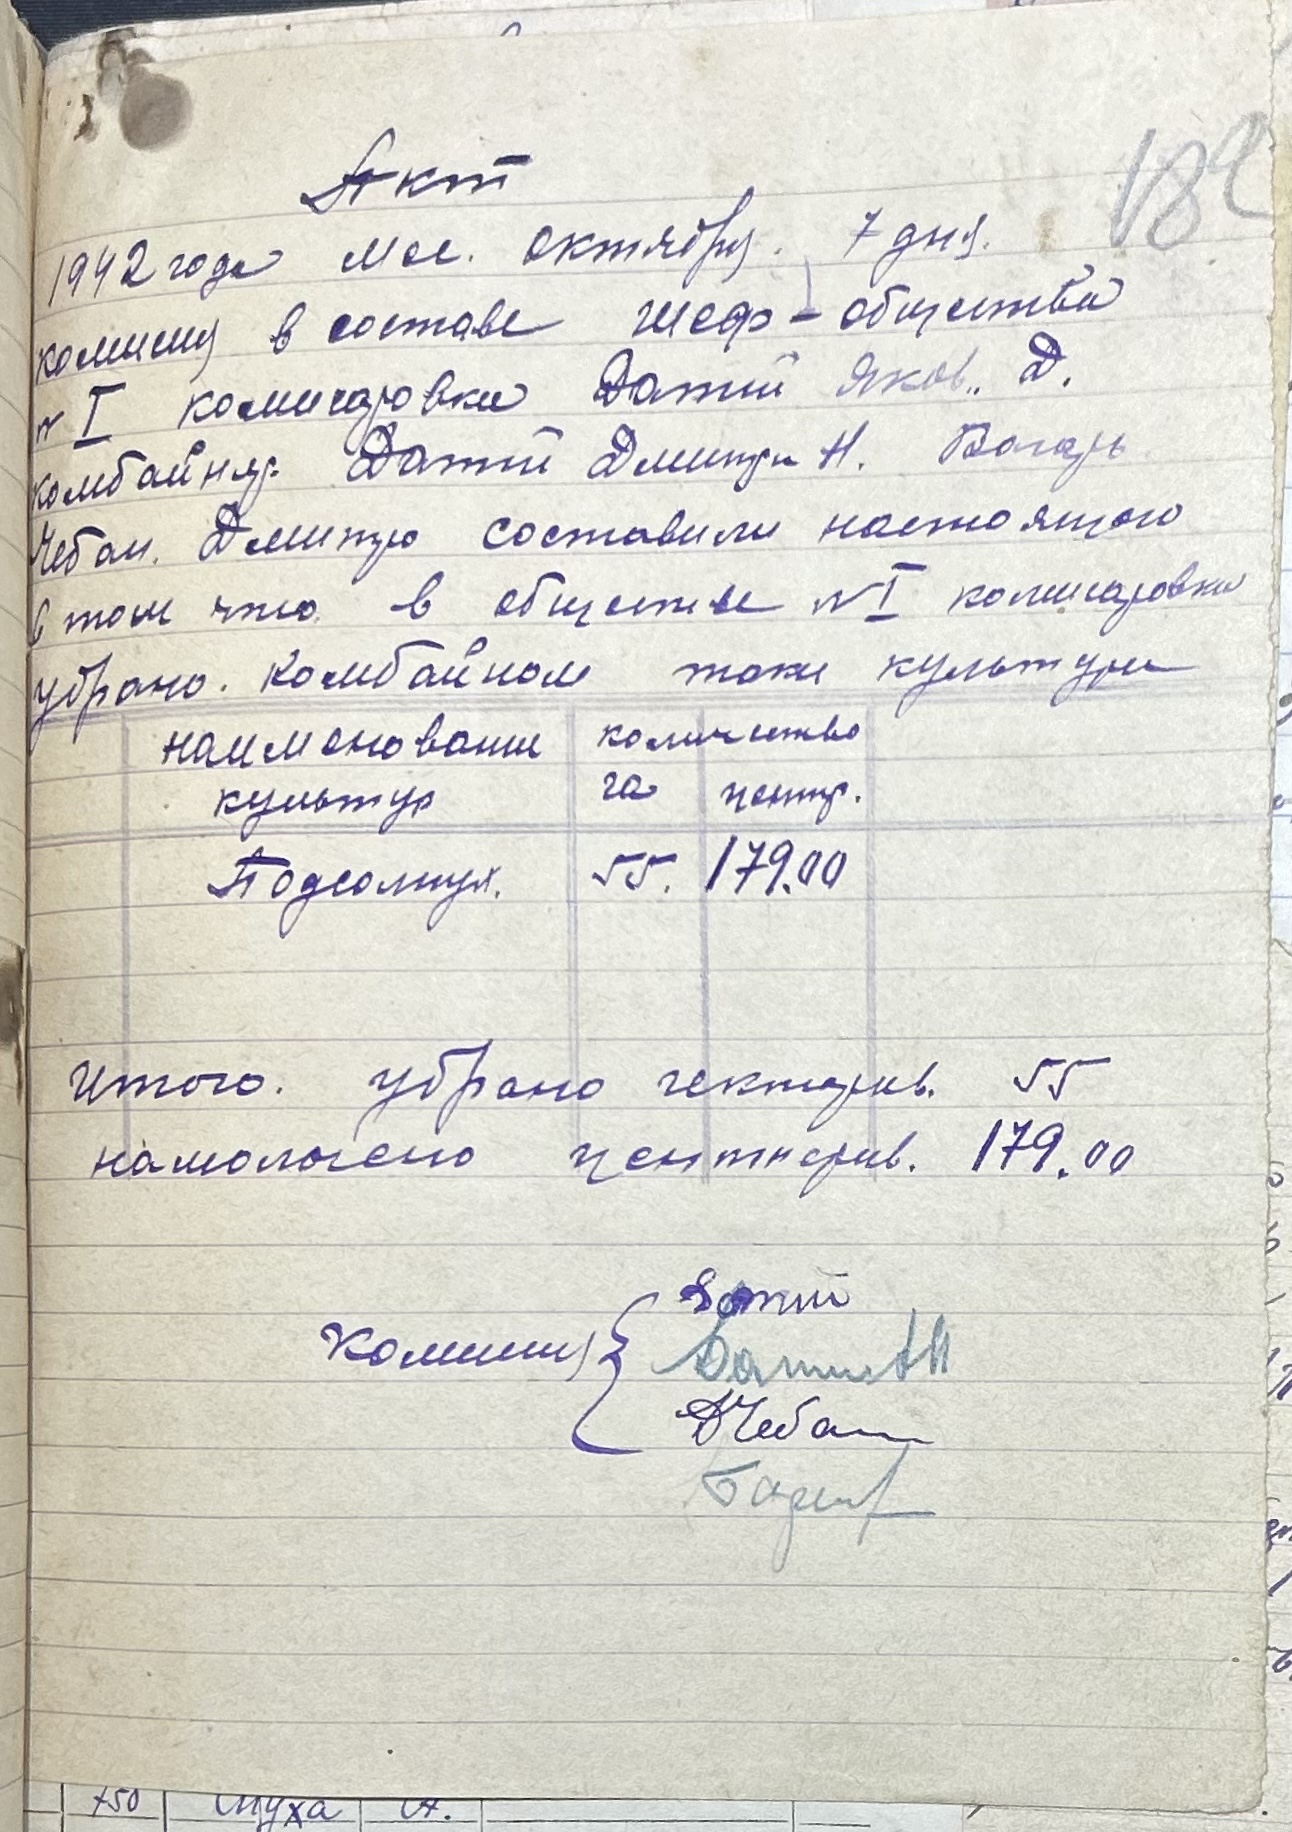 Акт
182
1942 года мес. октября. 7 дня.
комисия в составе шеф-общества
№ I комисаровки Датий Яков. Д.
комбайнер Датий Дмитри Н. Вагарь
Чебан. Дмитро составили настоящого
в том что в обществе № I комисаровки
убрано. комбайном таки культури
наименование количество
культур га центр.
Подсолнух. 55. 179.00
Итого. убрано гектарив. 55
намолочено центнерив. 179.00
Датий
комисия Датий Д Н
ДЧебан
750 Шуха А.